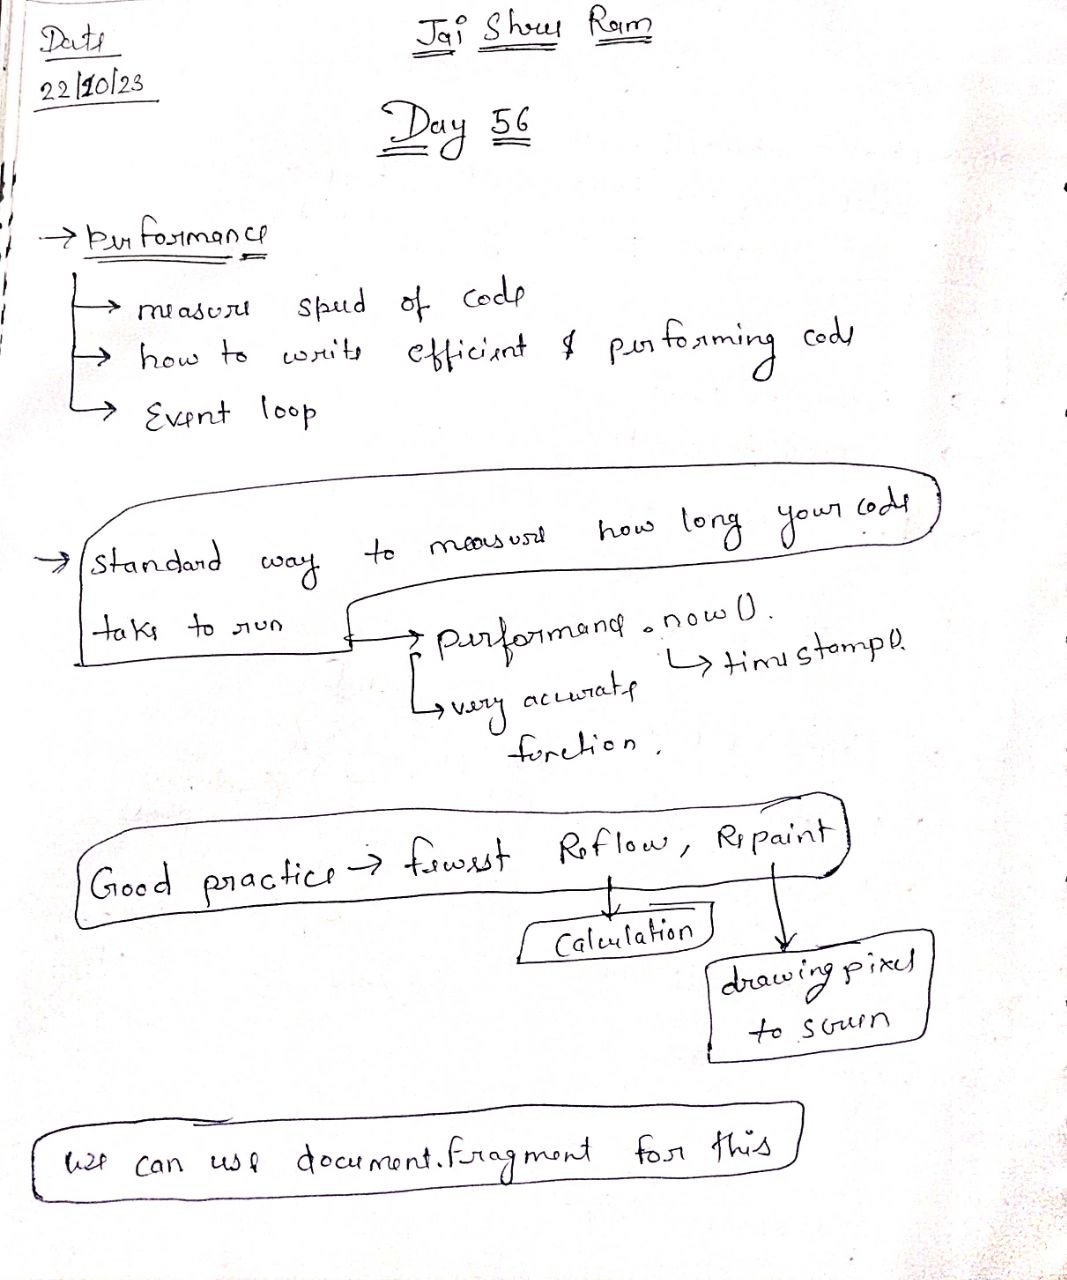 Date
22/10/23
Jai Shree Ram
Day 56
→ Performance
→ measure speed of code
→ how to write efficient & performing code
→ Event loop
→ standard way to measure how long your code
take to run
→ performance.now().
→ timestamp().
→ very accurate
function.
Good practice → fewest Reflow, Repaint
Calculation
drawing pixel
to screen
we can use document.fragment for this